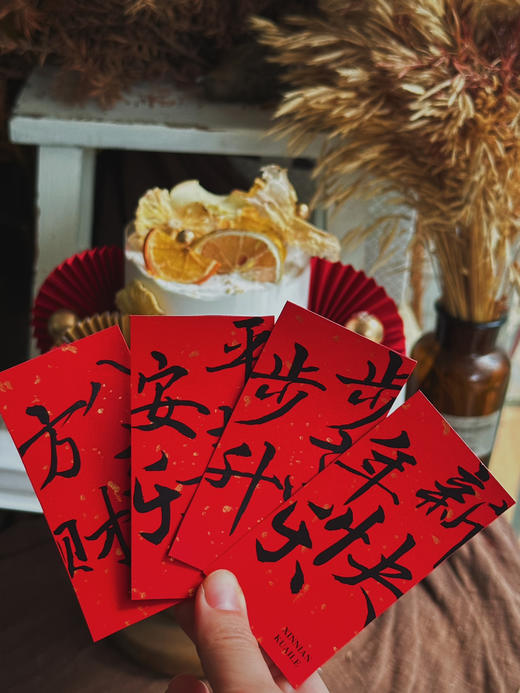 八方
财
平安
乐
步步
升
新年
快乐
XINNIAN
KUAILE